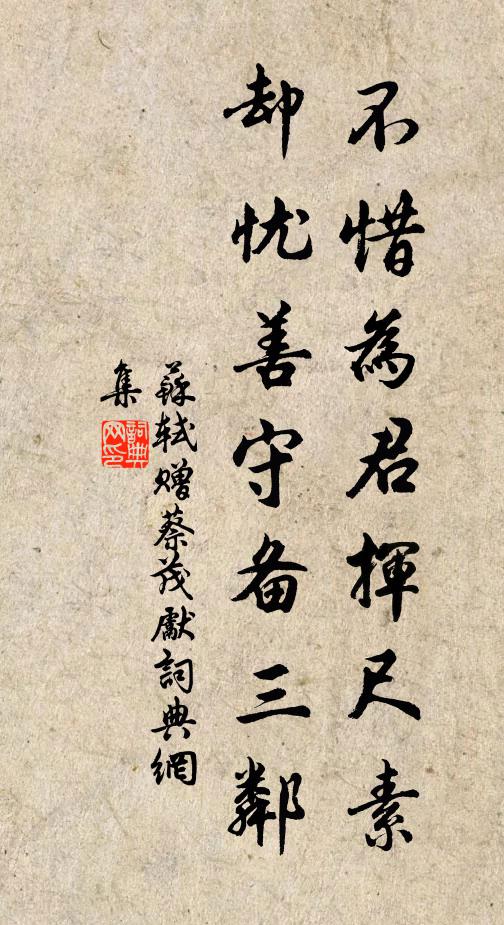 不惜為君揮尺素
却忧善守备三鄰
蘇軾赠蔡茂獻詞典網
集
詞典网印